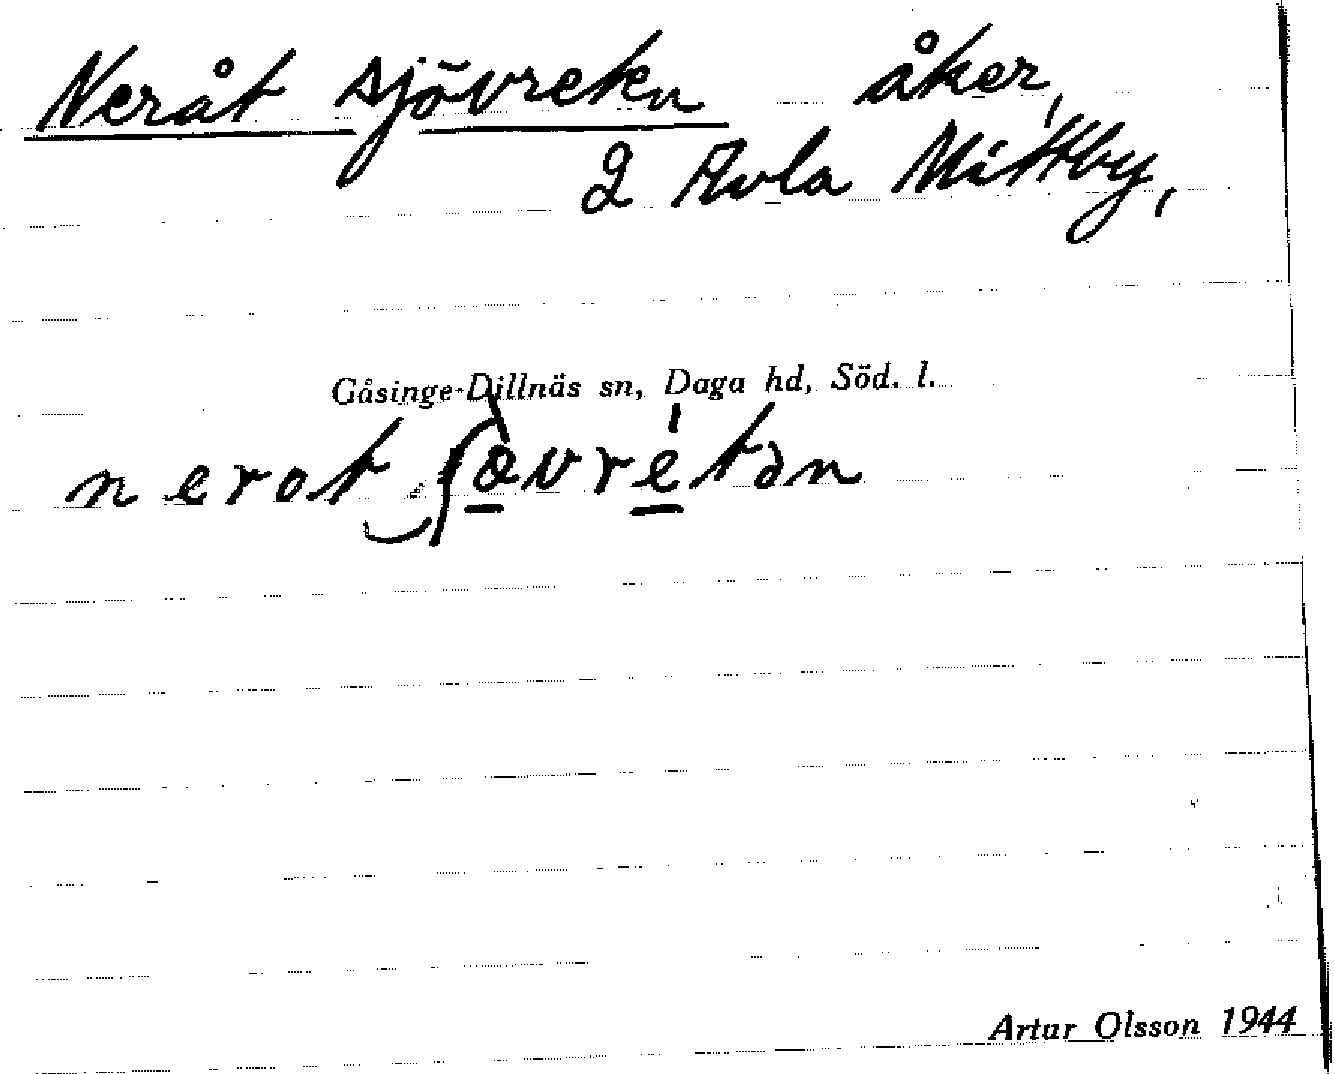 Neråt sjövreten åker,
2 Avla Mittby,
Gåsinge-Dillnäs sn, Daga hd, Söd. l.
nerot ʃøvretən
Artur Olsson 1944